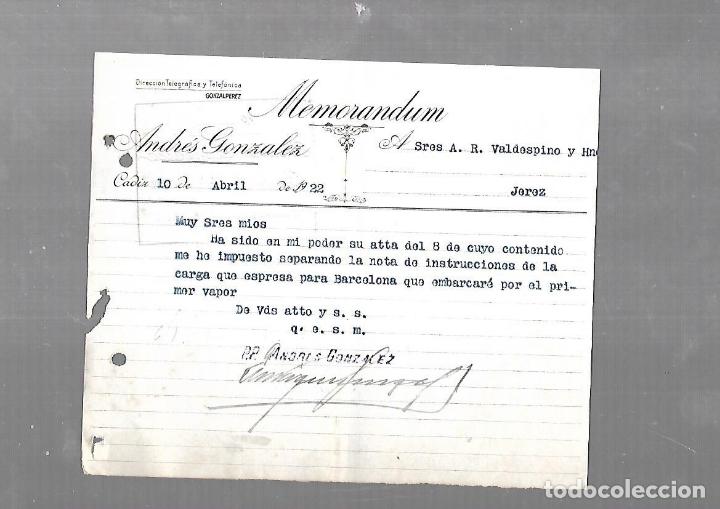 Dirección Telegráfica y Telefónica
GONZALPEREZ
Memorandum
Andrés Gonzalez
A Sres A. R. Valdespino y Hno
Cadiz 10 de Abril de 1922
Jerez
Muy Sres mios
Ha sido en mi poder su atta del 8 de cuyo contenido
me he impuesto separando la nota de instrucciones de la
carga que espresa para Barcelona que embarcaré por el pri-
mer vapor
De Vds atto y s. s.
q. e. s. m.
P.P. ANDRES GONZALEZ
todocoleccion.net